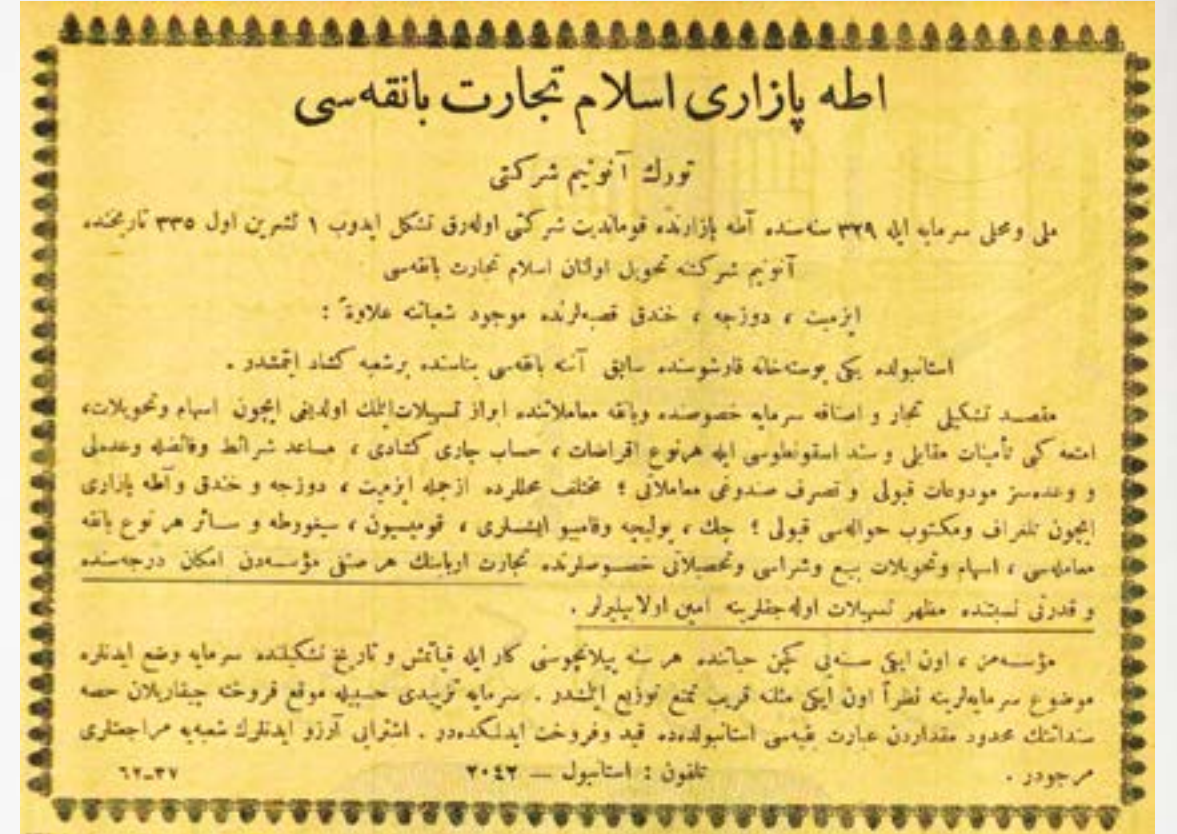 اطه پازاری اسلام تجارت بانقه‌سی
تورك آنونیم شركتی
ملی ومحلی سرمایه ایله ٣٢٩ سنه‌سنده آطه پازارنده قوماندیت شركتی اوله‌رق تشكل ایدوب ١ تشرین اول ٣٣٥ تاریخنده
آنونیم شركتنه تحویل اولنان اسلام تجارت بانقه‌سی
ازمیت ، دوزجه ، خندق قصبه‌لرنده موجود شعباتنه علاوةً :
استانبولده یكی پوسته‌خانه قارشوسنده سابق آتنه بانقه‌سی بناسنده برشعبه كشاد ایتمشدر .
مقصد تشكیلی تجار و اصنافه سرمایه خصوصنده وبانقه معاملاتنده ابراز تسهیلات‌ایتمك اولدیغی ایچون اسهام وتحویلات،
امتعه كبی تأمینات مقابلی و سند اسقونطوسی ایله هرنوع اقراضات ، حساب جاری كشادی ، مساعد شرائط وفائضله وعده‌لی
و وعده‌سز مودوعات قبولی و تصرف صندوغی معاملاتی ؛ مختلف محللرده ازجمله ازمیت ، دوزجه و خندق وآطه پازاری
ایچون تلغراف ومكتوب حواله‌سی قبولی ؛ چك ، پولیچه وقامبیو ایشلری ، قومیسیون ، سیغورطه و سائر هر نوع بانقه
معامله‌سی ، اسهام وتحویلات بیع وشراسی وتحصیلاتی خصوصلرنده تجارت اربابنك هر صنفی مؤسسه‌دن امكان درجه‌سنده
و قدرتی نسبتنده مظهر تسهیلات اوله‌جقلرینه امین اولابیلیرلر .
مؤسسه‌مز ، اون ایكی سنه‌لی كچن حیاتنده هر سنه پیلانچوسنی كار ایله قپاتمش و تاریخ تشكیلنده سرمایه وضع ایدنلره
موضوع سرمایه‌لرینه نظراً اون ایكی مثلنه قریب تمتع توزیع ایتمشدر . سرمایه تزییدی حسبیله موقع فروخته چیقاریلان حصه
سنداتنك محدود مقداردن عبارت بقیه‌سی استانبولده‌ده قید وفروخت ایدلمكده‌در . اشترانی آرزو ایدنلرك شعبه‌یه مراجعتلری
مرجودر .
تلفون : استانبول — ٢٠٤٢
٦٢ـ٣٧